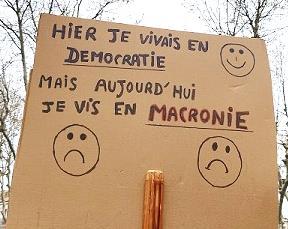 HIER JE VIVAIS EN
DEMOCRATIE
MAIS AUJOURD'HUI
JE VIS EN MACRONIE